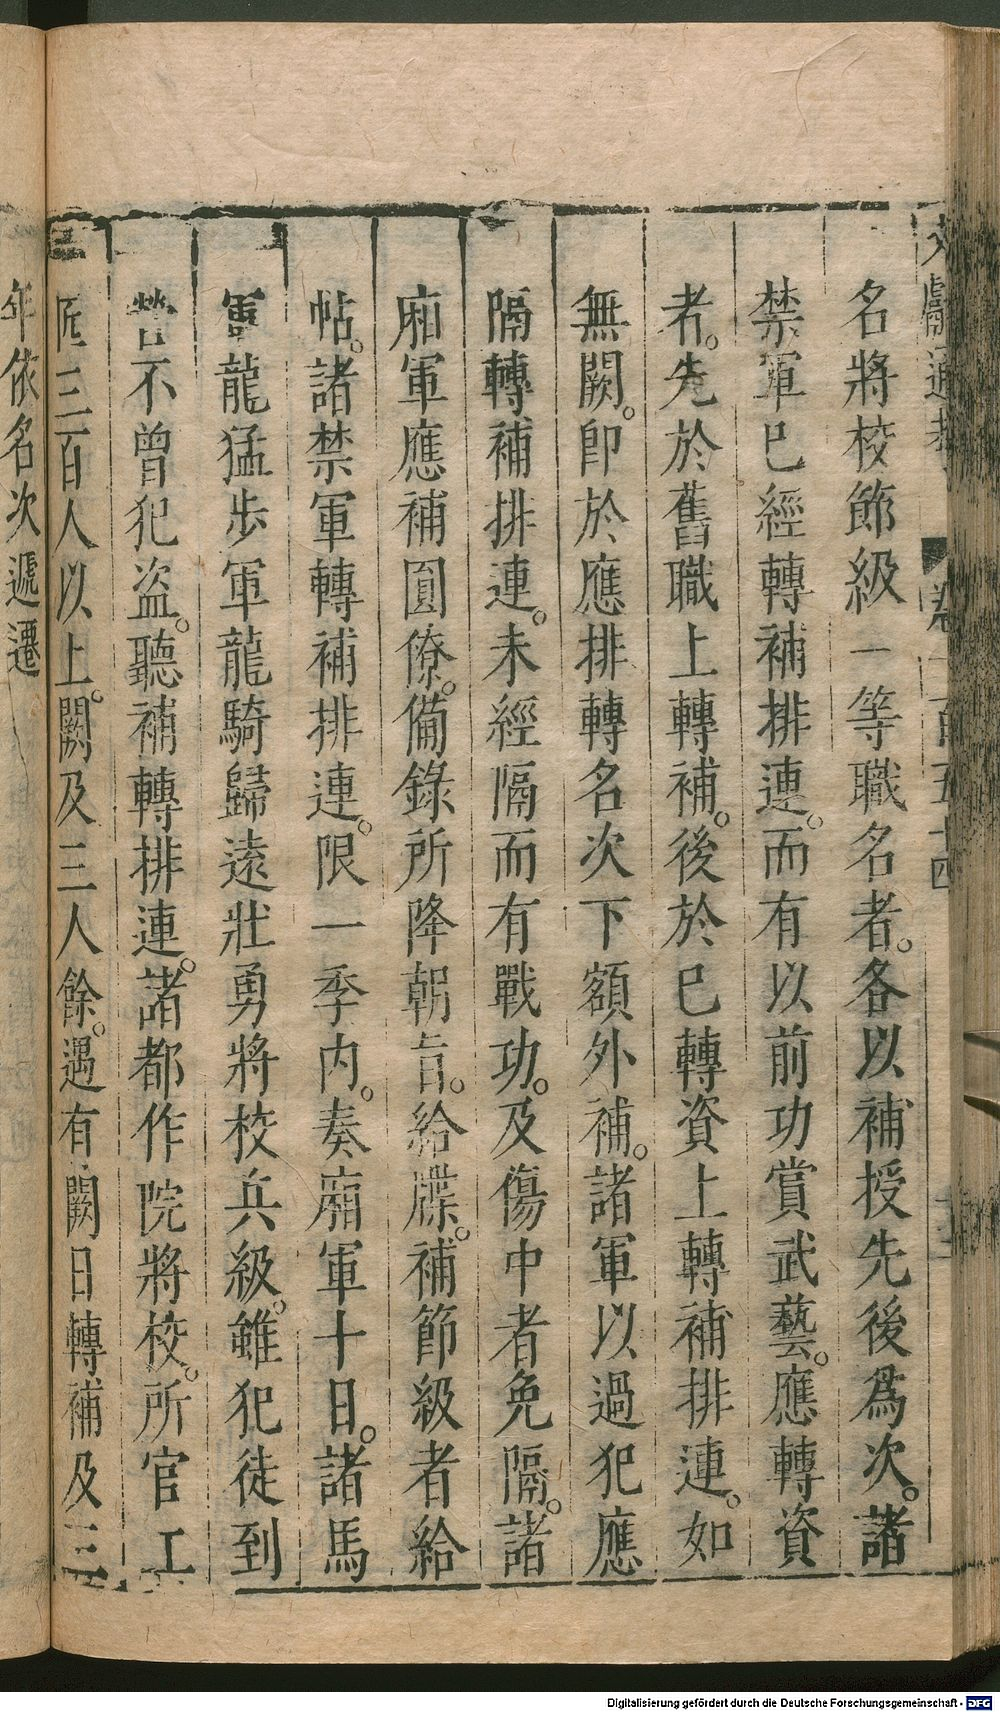 文獻通考 卷一百五十四
名將校節級一等職名者。各以補授先後爲次。諸
禁軍已經轉補排連。而有以前功賞武藝。應轉資
者。先於舊職上轉補。後於已轉資上轉補排連。如
無闕。卽於應排轉名次下額外補。諸軍以過犯應
隔轉補排連。未經隔而有戰功。及傷中者免隔。諸
廂軍應補圓僚。備錄所降朝旨。給牒。補節級者給
帖。諸禁軍轉補排連。限一季內。奏廂軍十日。諸馬
軍龍猛步軍龍騎歸遠壯勇將校兵級。雖犯徒到
營不曾犯盜。聽補轉排連。諸都作院將校。所官工
匠三百人以上。闕及三人餘。遇有闕日轉補及三
年依名次遞遷
Digitalisierung gefördert durch die Deutsche Forschungsgemeinschaft - DFG